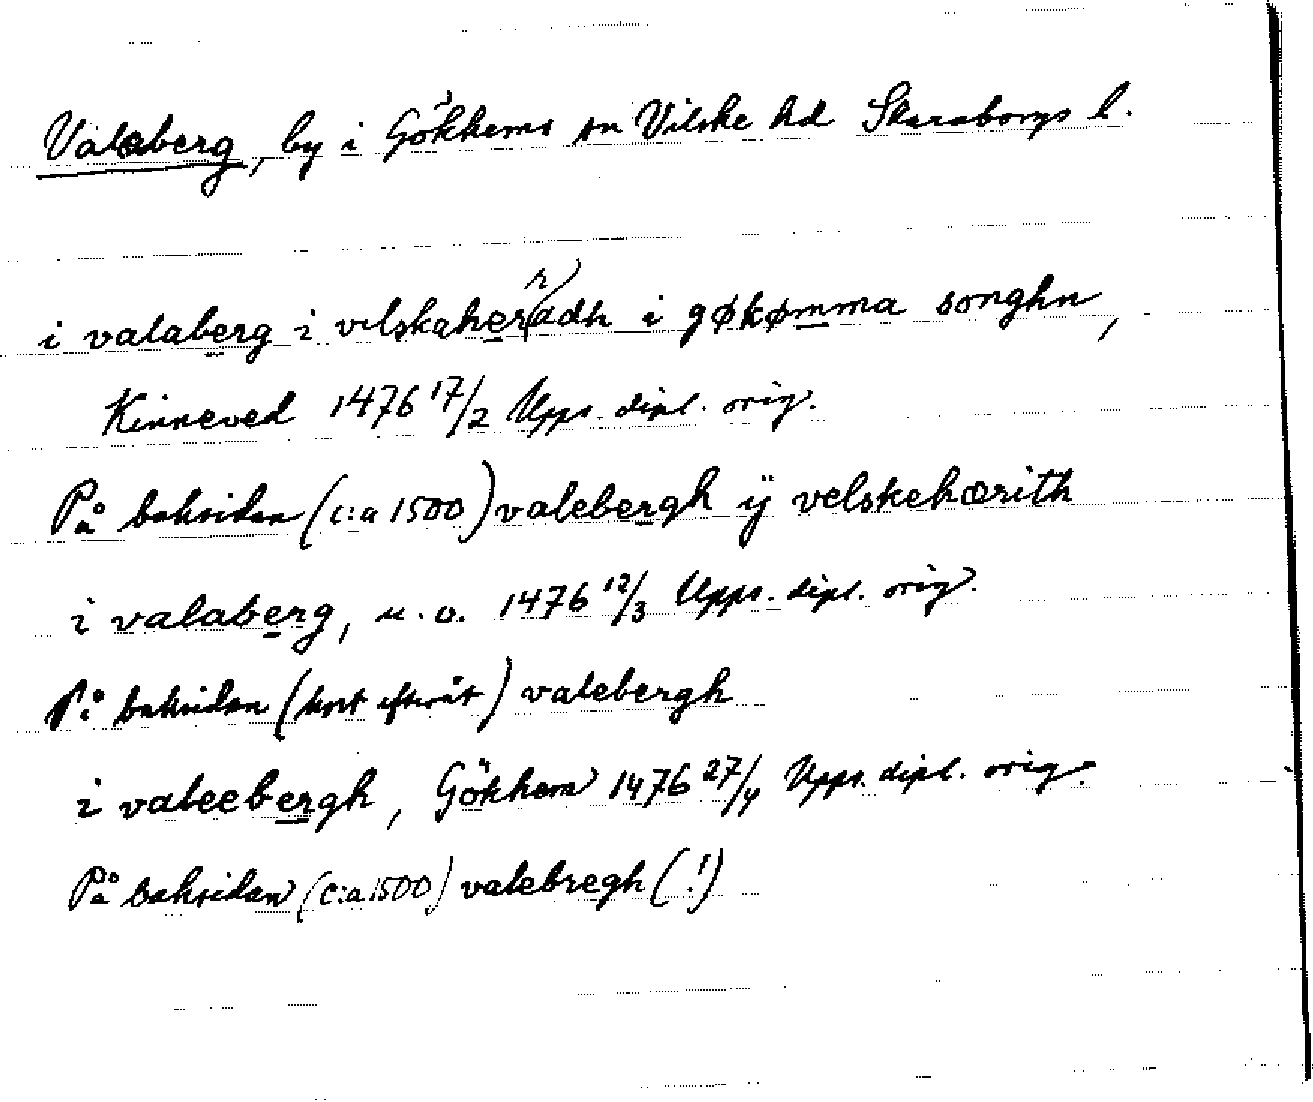 Valaberg, by i Gökhems sn Vilske hd Skaraborgs l.
i valaberg i vilskaherradh i gøkømma songhn,
Kinneved 1476 17/2 Upps. dipl. orig.
På baksidan (c:a 1500) valebergh ÿ velskehærith
i valaberg, u.o. 1476 12/3 Upps. dipl. orig.
På baksidan (kort efteråt) valebergh
i valeebergh, Gökhem 1476 27/4 Upps. dipl. orig.
På baksidan (c:a 1500) valebregh (!)